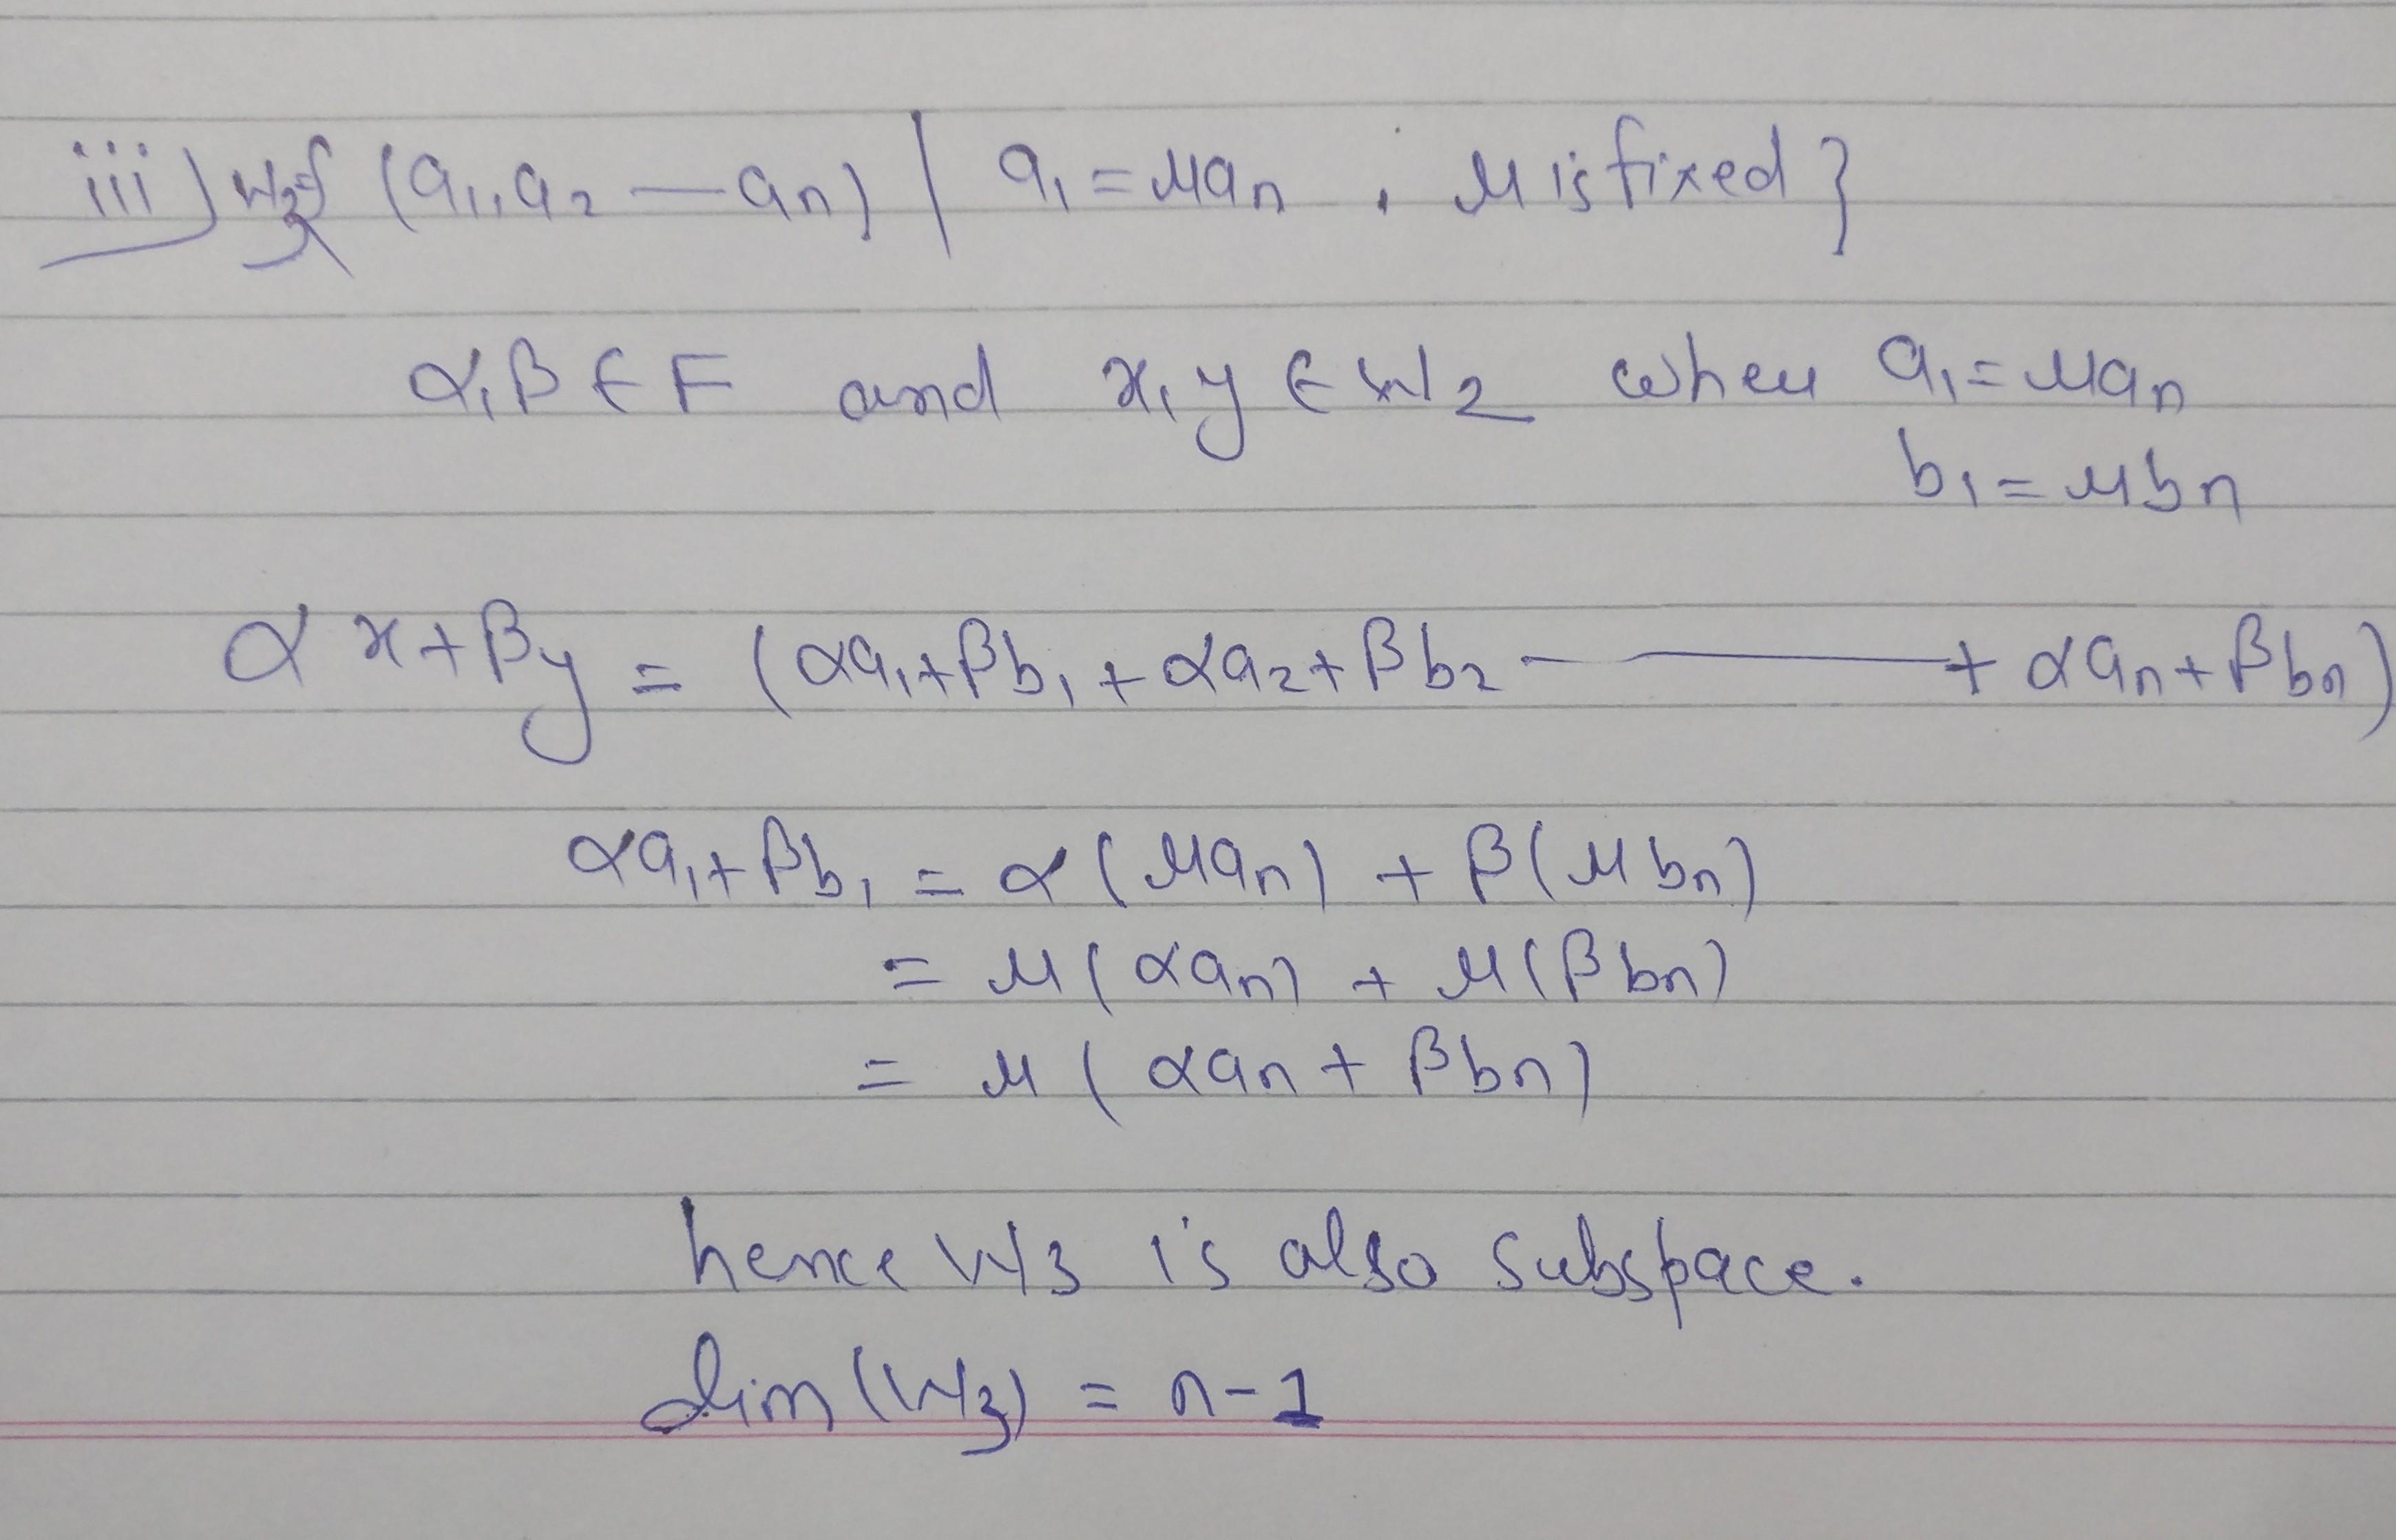 iii) W3={ (a1, a2 — an) | a1 = μan , μ is fixed }
α, β ∈ F and x, y ∈ W2 when a1 = μan
b1 = μbn
αx + βy = (αa1 + βb1 + αa2 + βb2 - — + αan + βbn)
αa1 + βb1 = α(μan) + β(μbn)
= μ(αan) + μ(βbn)
= μ(αan + βbn)
hence W3 is also subspace.
dim (W3) = n-1